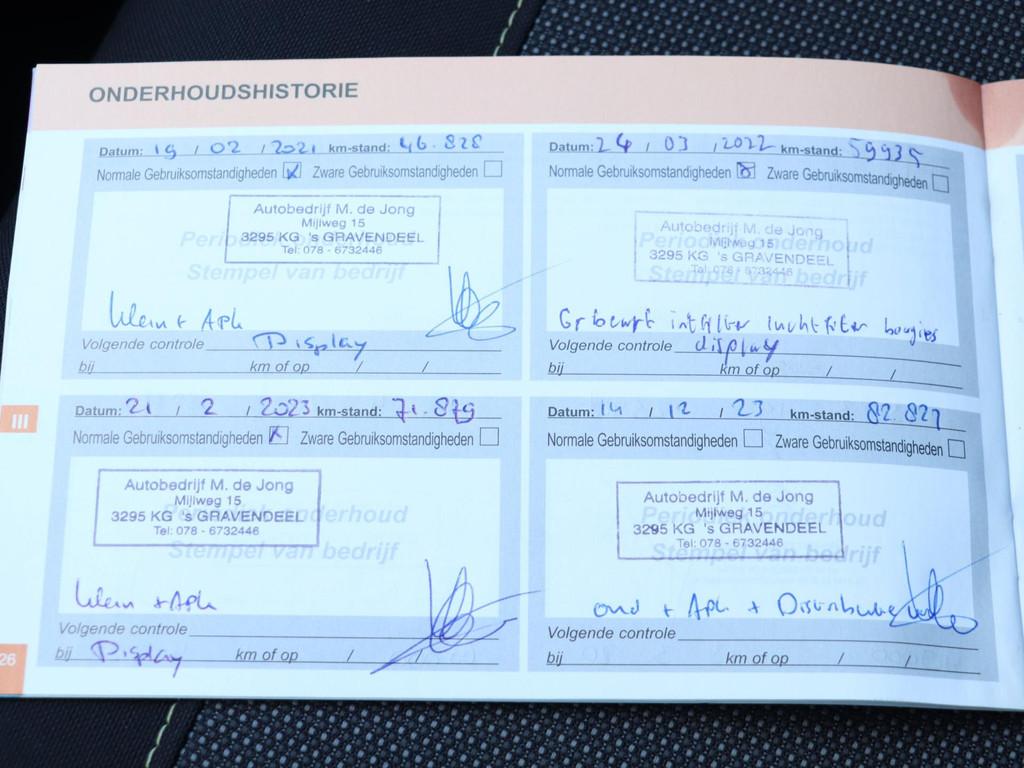 ONDERHOUDSHISTORIE
Datum: 19 / 02 / 2021 km-stand: 46.828
Normale Gebruiksomstandigheden Zware Gebruiksomstandigheden
Periodiek onderhoud
Stempel van bedrijf
Autobedrijf M. de Jong
Mijlweg 15
3295 KG 's GRAVENDEEL
Tel: 078 - 6732446
klein + Apk
Volgende controle Display
bij km of op / /
Datum: 24 / 03 / 2022 km-stand: 59935
Normale Gebruiksomstandigheden Zware Gebruiksomstandigheden
Periodiek onderhoud
Stempel van bedrijf
Autobedrijf M. de Jong
Mijlweg 15
3295 KG 's GRAVENDEEL
Tel: 078 - 6732446
Gr beurt intfilter luchtfilter bougies
Volgende controle display
bij km of op / /
III
Datum: 21 / 2 / 2023 km-stand: 71.879
Normale Gebruiksomstandigheden Zware Gebruiksomstandigheden
Periodiek onderhoud
Stempel van bedrijf
Autobedrijf M. de Jong
Mijlweg 15
3295 KG 's GRAVENDEEL
Tel: 078 - 6732446
klein + Apk
Volgende controle
bij Display km of op / /
Datum: 14 / 12 / 23 km-stand: 82.827
Normale Gebruiksomstandigheden Zware Gebruiksomstandigheden
Periodiek onderhoud
Stempel van bedrijf
Autobedrijf M. de Jong
Mijlweg 15
3295 KG 's GRAVENDEEL
Tel: 078 - 6732446
ond + Apk + Distributie
Volgende controle
bij km of op / /
26